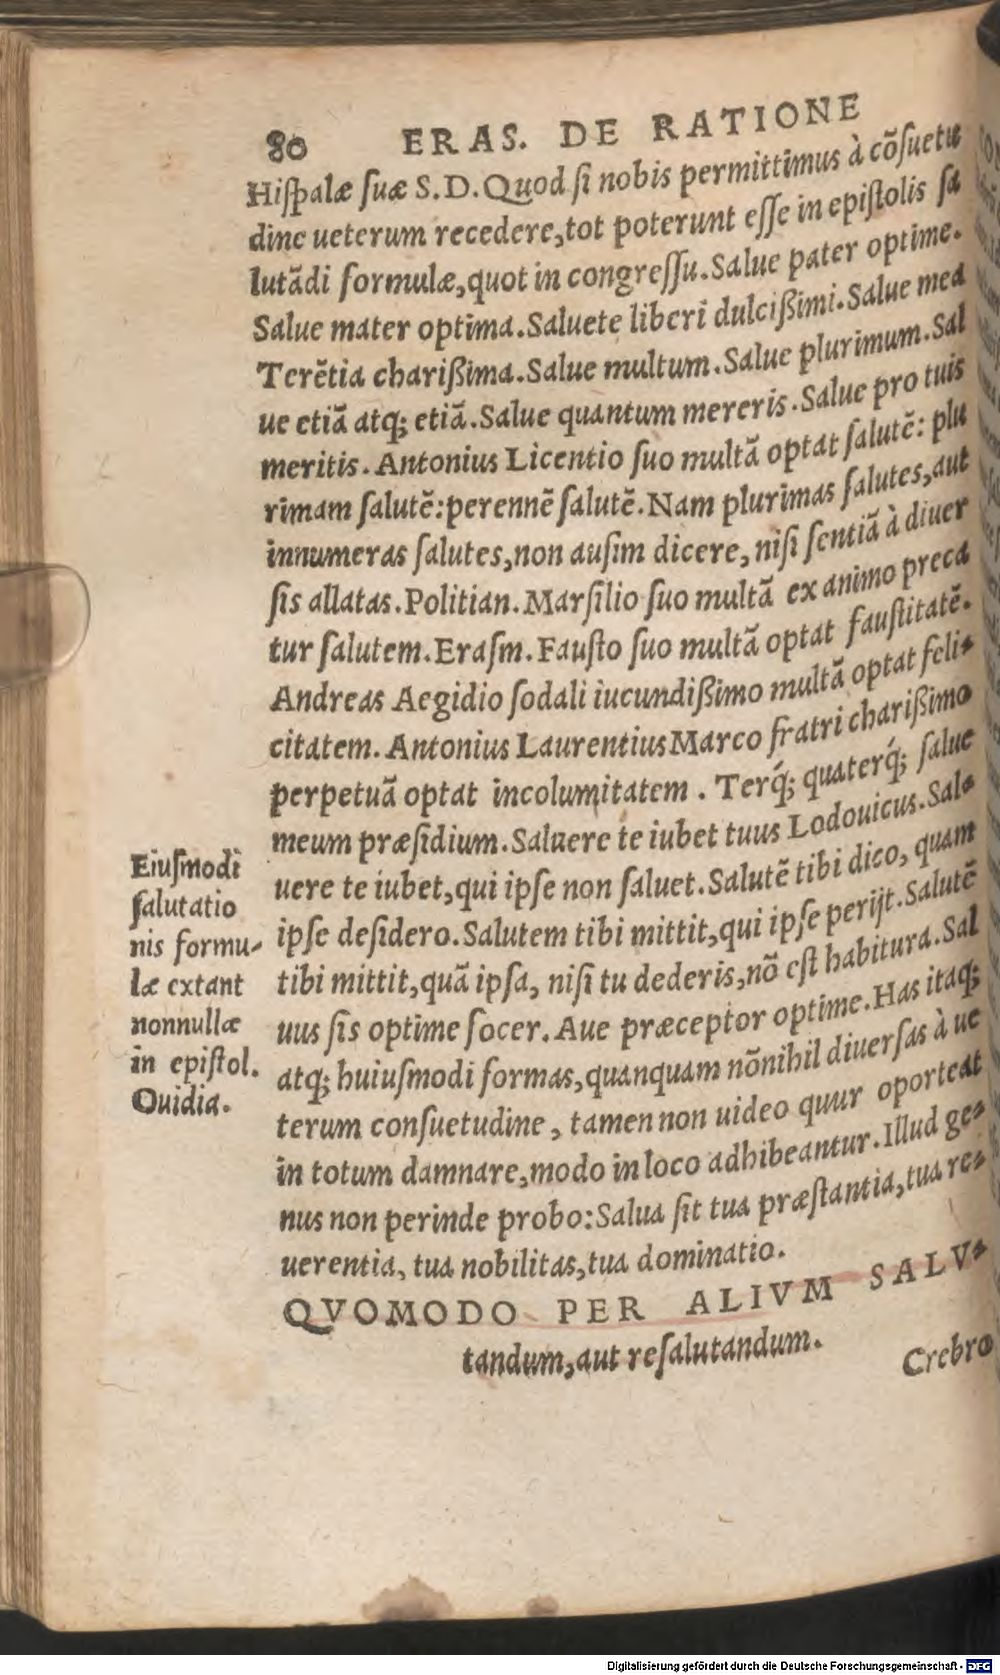 80 ERAS. DE RATIONE
Hiſpalæ ſuæ S.D. Quod ſi nobis permittimus à cõſuetu
dine ueterum recedere, tot poterunt eſſe in epiſtolis ſa
lutãdi formulæ, quot in congreſſu. Salue pater optime.
Salue mater optima. Saluete liberi dulcißimi. Salue mea
Terẽtia charißima. Salue multum. Salue plurimum. Sal
ue etiã atq; etiã. Salue quantum mereris. Salue pro tuis
meritis. Antonius Licentio ſuo multã optat ſalutẽ: plu
rimam ſalutẽ: perennẽ ſalutẽ. Nam plurimas ſalutes, aut
innumeras ſalutes, non auſim dicere, niſi ſentiã à diuer
ſis allatas. Politian. Marſilio ſuo multã ex animo preca
tur ſalutem. Eraſm. Fauſto ſuo multã optat fauſtitatẽ.
Andreas Aegidio ſodali iucundißimo multã optat feli-
citatem. Antonius Laurentius Marco fratri charißimo
perpetuã optat incolumitatem. Terq́; quaterq́; ſalue
meum præſidium. Saluere te iubet tuus Lodouicus. Sal-
uere te iubet, qui ipſe non ſaluet. Salutẽ tibi dico, quam
ipſe deſidero. Salutem tibi mittit, qui ipſe perijt. Salutẽ
tibi mittit, quã ipſa, niſi tu dederis, nõ eſt habitura. Sal
uus ſis optime ſocer. Aue præceptor optime. Has itaq;
atq; huiuſmodi formas, quanquam nõnihil diuerſas à ue
terum conſuetudine, tamen non uideo quur oporteat
in totum damnare, modo in loco adhibeantur. Illud ge-
nus non perinde probo: Salua ſit tua præſtantia, tua re-
uerentia, tua nobilitas, tua dominatio.
QVOMODO PER ALIVM SALV-
tandum, aut reſalutandum.
Crebro
Eiuſmodi
ſalutatio
nis formu-
læ extant
nonnullæ
in epiſtol.
Ouidia.
Digitalisierung gefördert durch die Deutsche Forschungsgemeinschaft - DFG